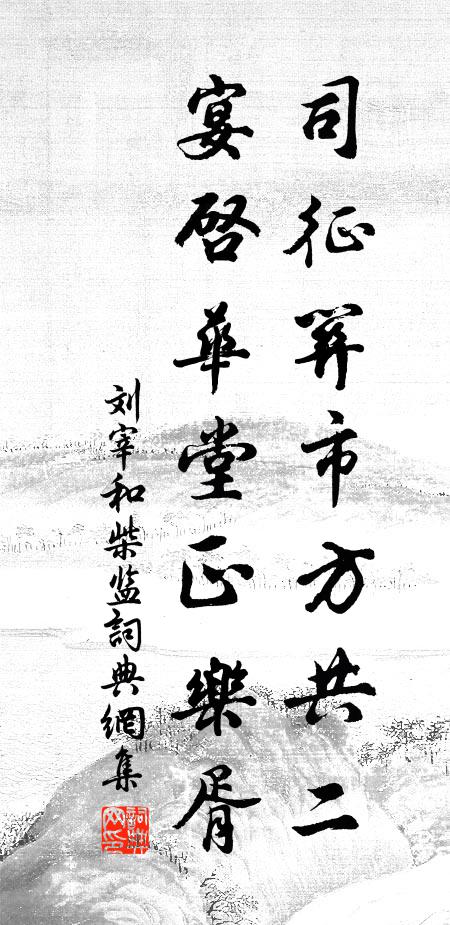 司征關市方共二
宴啓華堂正樂胥
刘宰和柴监詞典網集